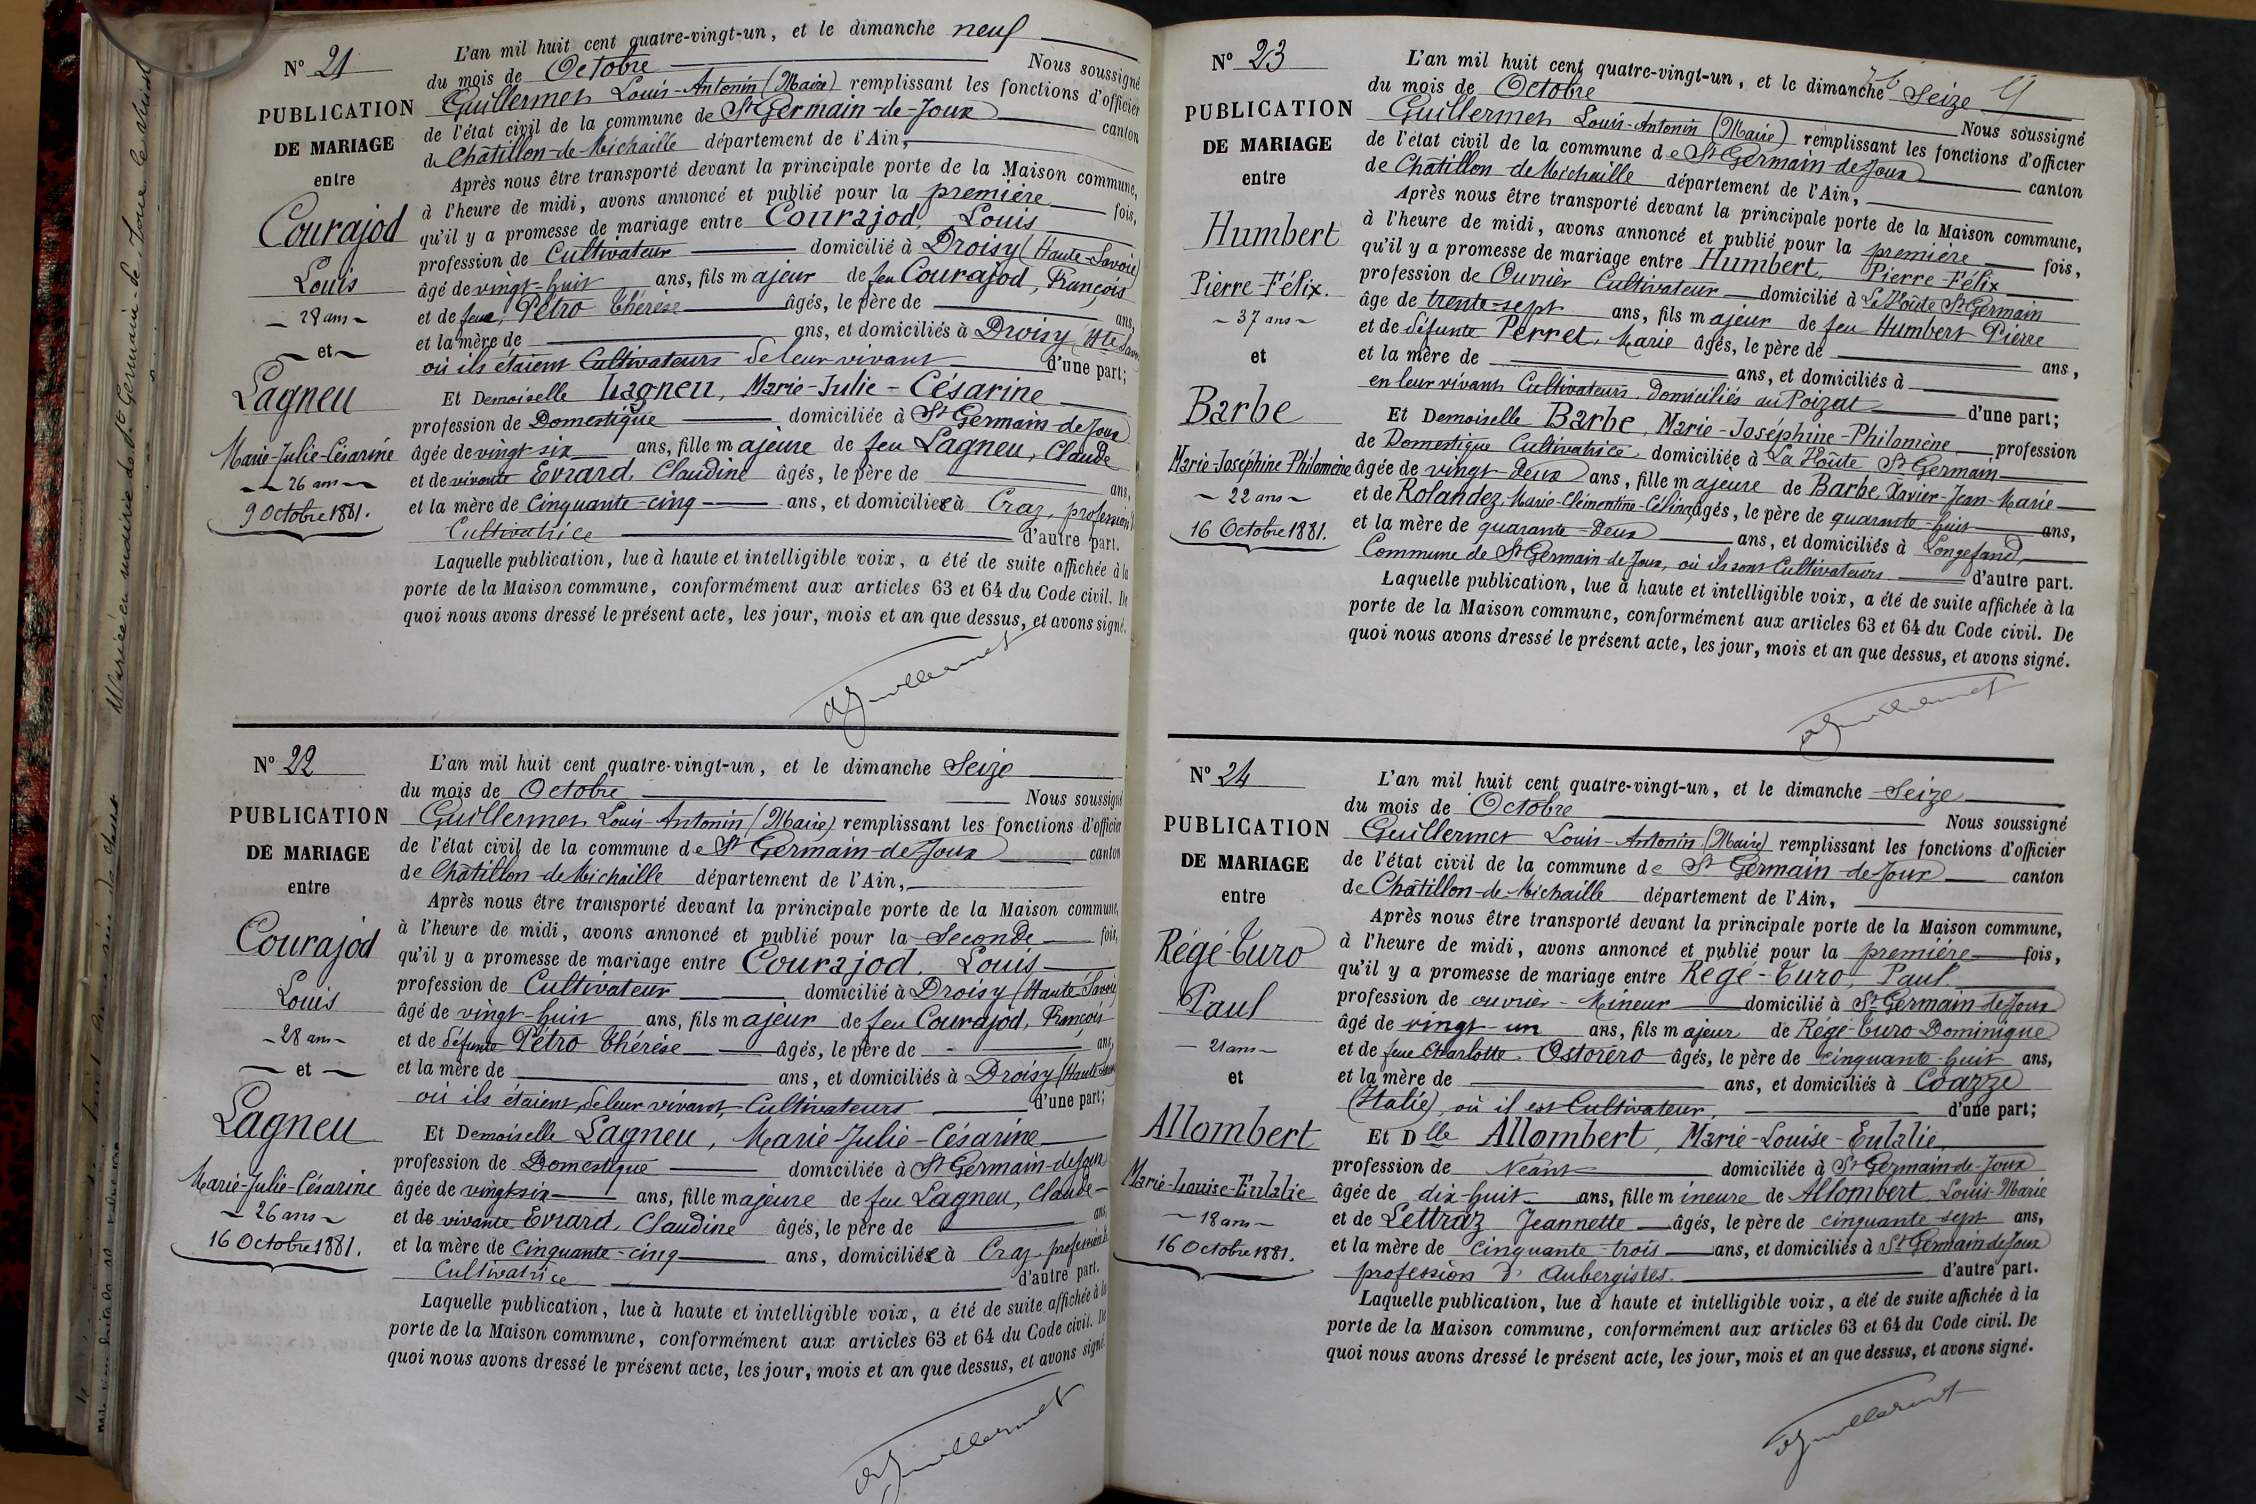 N° 21
PUBLICATION
DE MARIAGE
entre
Courajod
Louis
- 28 ans -
- et -
Lagneu
Marie-Julie-Césarine
- 26 ans -
9 Octobre 1881.
L'an mil huit cent quatre-vingt-un, et le dimanche neuf
du mois de Octobre Nous soussigné
Guillermet Louis-Antonin (Maire) remplissant les fonctions d'officier
de l'état civil de la commune de St Germain-de-Joux canton
de Châtillon-de-Michaille département de l'Ain,
Après nous être transporté devant la principale porte de la Maison commune,
à l'heure de midi, avons annoncé et publié pour la première fois,
qu'il y a promesse de mariage entre Courajod, Louis
profession de Cultivateur domicilié à Droisy (Haute-Savoie)
âgé de vingt-huit ans, fils majeur de feu Courajod, François
et de feue, Pétro Thérèse âgés, le père de ans,
et la mère de ans, et domiciliés à Droisy (Hte Savoie
où ils étaient Cultivateurs de leur vivant d'une part;
Et Demoiselle Lagneu, Marie-Julie-Césarine
profession de Domestique domiciliée à St Germain-de-Joux
âgée de vingt-six ans, fille majeure de feu Lagneu, Claude
et de vivante Evrard, Claudine âgés, le père de ans,
et la mère de cinquante-cinq ans, et domiciliée à Craz, profession
Cultivatrice d'autre part.
Laquelle publication, lue à haute et intelligible voix, a été de suite affichée à la
porte de la Maison commune, conformément aux articles 63 et 64 du Code civil. De
quoi nous avons dressé le présent acte, les jour, mois et an que dessus, et avons signé.
Guillermet
N° 22
PUBLICATION
DE MARIAGE
entre
Courajod
Louis
- 28 ans -
- et -
Lagneu
Marie-Julie-Césarine
- 26 ans -
16 Octobre 1881.
L'an mil huit cent quatre-vingt-un, et le dimanche Seize
du mois de Octobre Nous soussigné
Guillermet Louis-Antonin (Maire) remplissant les fonctions d'officier
de l'état civil de la commune de St Germain-de-Joux canton
de Châtillon-de-Michaille département de l'Ain,
Après nous être transporté devant la principale porte de la Maison commune,
à l'heure de midi, avons annoncé et publié pour la Seconde fois,
qu'il y a promesse de mariage entre Courajod, Louis
profession de Cultivateur domicilié à Droisy (Haute-Savoie)
âgé de vingt-huit ans, fils majeur de feu Courajod, François
et de défunte Pétro Thérèse âgés, le père de ans,
et la mère de ans, et domiciliés à Droisy (Haute-Savoie
où ils étaient, de leur vivant, Cultivateurs d'une part;
Et Demoiselle Lagneu, Marie-Julie-Césarine
profession de Domestique domiciliée à St Germain-de-Joux
âgée de vingt-six ans, fille majeure de feu Lagneu, Claude
et de vivante Evrard, Claudine âgés, le père de ans,
et la mère de cinquante-cinq ans, domiciliée à Craz, profession de
Cultivatrice d'autre part.
Laquelle publication, lue à haute et intelligible voix, a été de suite affichée à la
porte de la Maison commune, conformément aux articles 63 et 64 du Code civil. De
quoi nous avons dressé le présent acte, les jour, mois et an que dessus, et avons signé.
Guillermet
N° 23
PUBLICATION
DE MARIAGE
entre
Humbert
Pierre-Félix.
- 37 ans -
et
Barbe
Marie-Joséphine Philomène
- 22 ans -
16 Octobre 1881.
L'an mil huit cent quatre-vingt-un, et le dimanche Seize
du mois de Octobre Nous soussigné
Guillermet Louis-Antonin (Maire) remplissant les fonctions d'officier
de l'état civil de la commune de St Germain-de-Joux canton
de Châtillon-de-Michaille département de l'Ain,
Après nous être transporté devant la principale porte de la Maison commune,
à l'heure de midi, avons annoncé et publié pour la première fois,
qu'il y a promesse de mariage entre Humbert, Pierre-Félix
profession de Ouvrier Cultivateur domicilié à La Voûte St Germain
âge de trente-sept ans, fils majeur de feu Humbert Pierre
et de défunte Perret, Marie âgés, le père de ans,
et la mère de ans, et domiciliés à
en leur vivant Cultivateurs, Domiciliés au Poizat d'une part;
Et Demoiselle Barbe, Marie-Joséphine-Philomène profession
de Domestique Cultivatrice domiciliée à La Voûte St Germain
âgée de vingt-deux ans, fille majeure de Barbe Xavier-Jean-Marie
et de Rolandez, Marie-Clémentine-Célina âgés, le père de quarante-huit ans,
et la mère de quarante-deux ans, et domiciliés à Longefand,
Commune de St Germain de Joux, où ils sont Cultivateurs. d'autre part.
Laquelle publication, lue à haute et intelligible voix, a été de suite affichée à la
porte de la Maison commune, conformément aux articles 63 et 64 du Code civil. De
quoi nous avons dressé le présent acte, les jour, mois et an que dessus, et avons signé.
Guillermet
N° 24
PUBLICATION
DE MARIAGE
entre
Régé-Turo
Paul
- 21 ans -
et
Allombert
Marie-Louise-Eulalie
- 18 ans -
16 Octobre 1881.
L'an mil huit cent quatre-vingt-un, et le dimanche Seize
du mois de Octobre Nous soussigné
Guillermet Louis-Antonin (Maire) remplissant les fonctions d'officier
de l'état civil de la commune de St Germain-de-Joux canton
de Châtillon-de-Michaille département de l'Ain,
Après nous être transporté devant la principale porte de la Maison commune,
à l'heure de midi, avons annoncé et publié pour la première fois,
qu'il y a promesse de mariage entre Régé-Turo, Paul
profession de ouvrier-Mineur domicilié à St Germain de Joux
âgé de vingt-un ans, fils majeur de Régé-Turo Dominique
et de feue Charlotte Ostorero âgés, le père de cinquante-huit ans,
et la mère de ans, et domiciliés à Coazze
(Italie), où il est Cultivateur, d'une part;
Et Dlle Allombert, Marie-Louise-Eulalie
profession de Néant domiciliée à St Germain-de-Joux
âgée de dix-huit ans, fille mineure de Allombert, Louis-Marie
et de Lettraz Jeannette âgés, le père de cinquante-sept ans,
et la mère de cinquante-trois ans, et domiciliés à St Germain de Joux
profession d'Aubergistes. d'autre part.
Laquelle publication, lue à haute et intelligible voix, a été de suite affichée à la
porte de la Maison commune, conformément aux articles 63 et 64 du Code civil. De
quoi nous avons dressé le présent acte, les jour, mois et an que dessus, et avons signé.
Guillermet